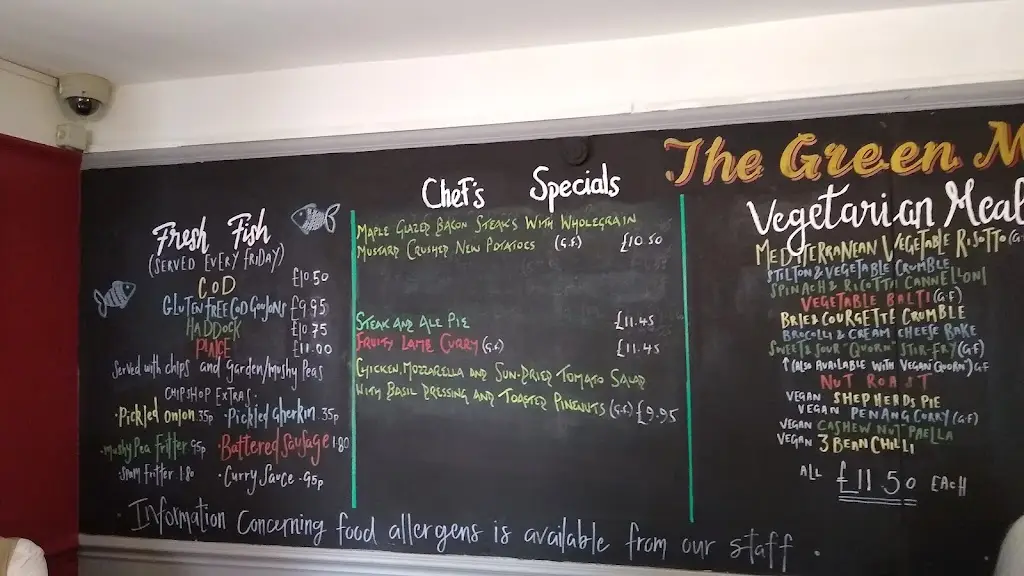 Fresh Fish
(SERVED EVERY FRIDAY)
COD £10.50
GLUTEN FREE COD GOUJONS £9.95
HADDOCK £10.75
PLAICE £11.00
Served with chips and Garden/Mushy Peas
CHIPSHOP EXTRAS:
·Pickled onion 35p ·Pickled Gherkin 35p
·Mushy Pea fritter 95p ·Battered Sausage 1.80
Spam fritter 1.80 ·Curry Sauce -95p
Chef's Specials
MAPLE GLAZED BACON STEAKS WITH WHOLEGRAIN
MUSTARD CRUSHED NEW POTATOES (G.F) £10.50
STEAK AND ALE PIE £11.45
FRUITY LAMB CURRY (G.F) £11.45
CHICKEN, MOZZARELLA AND SUN-DRIED TOMATO SALAD
WITH BASIL DRESSING AND TOASTED PINENUTS (G.F) £9.95
The Green M
Vegetarian Meal
MEDITERRANEAN VEGETABLE RISOTTO (G
STILTON & VEGETABLE CRUMBLE
SPINACH & RICOTTA CANNELLONI
VEGETABLE BALTI (G.F)
BRIE & COURGETTE CRUMBLE
BROCOLLI & CREAM CHEESE BAKE
SWEET & SOUR "QUORN" STIR-FRY (G.F)
↑(ALSO AVAILABLE WITH VEGAN QUORN) G.F
NUT ROAST
VEGAN SHEPHERDS PIE
VEGAN PENANG CURRY (G.F)
VEGAN CASHEW NUT PAELLA
VEGAN 3 BEAN CHILLI
ALL £11.50 EACH
·Information Concerning food allergens is available from our staff.